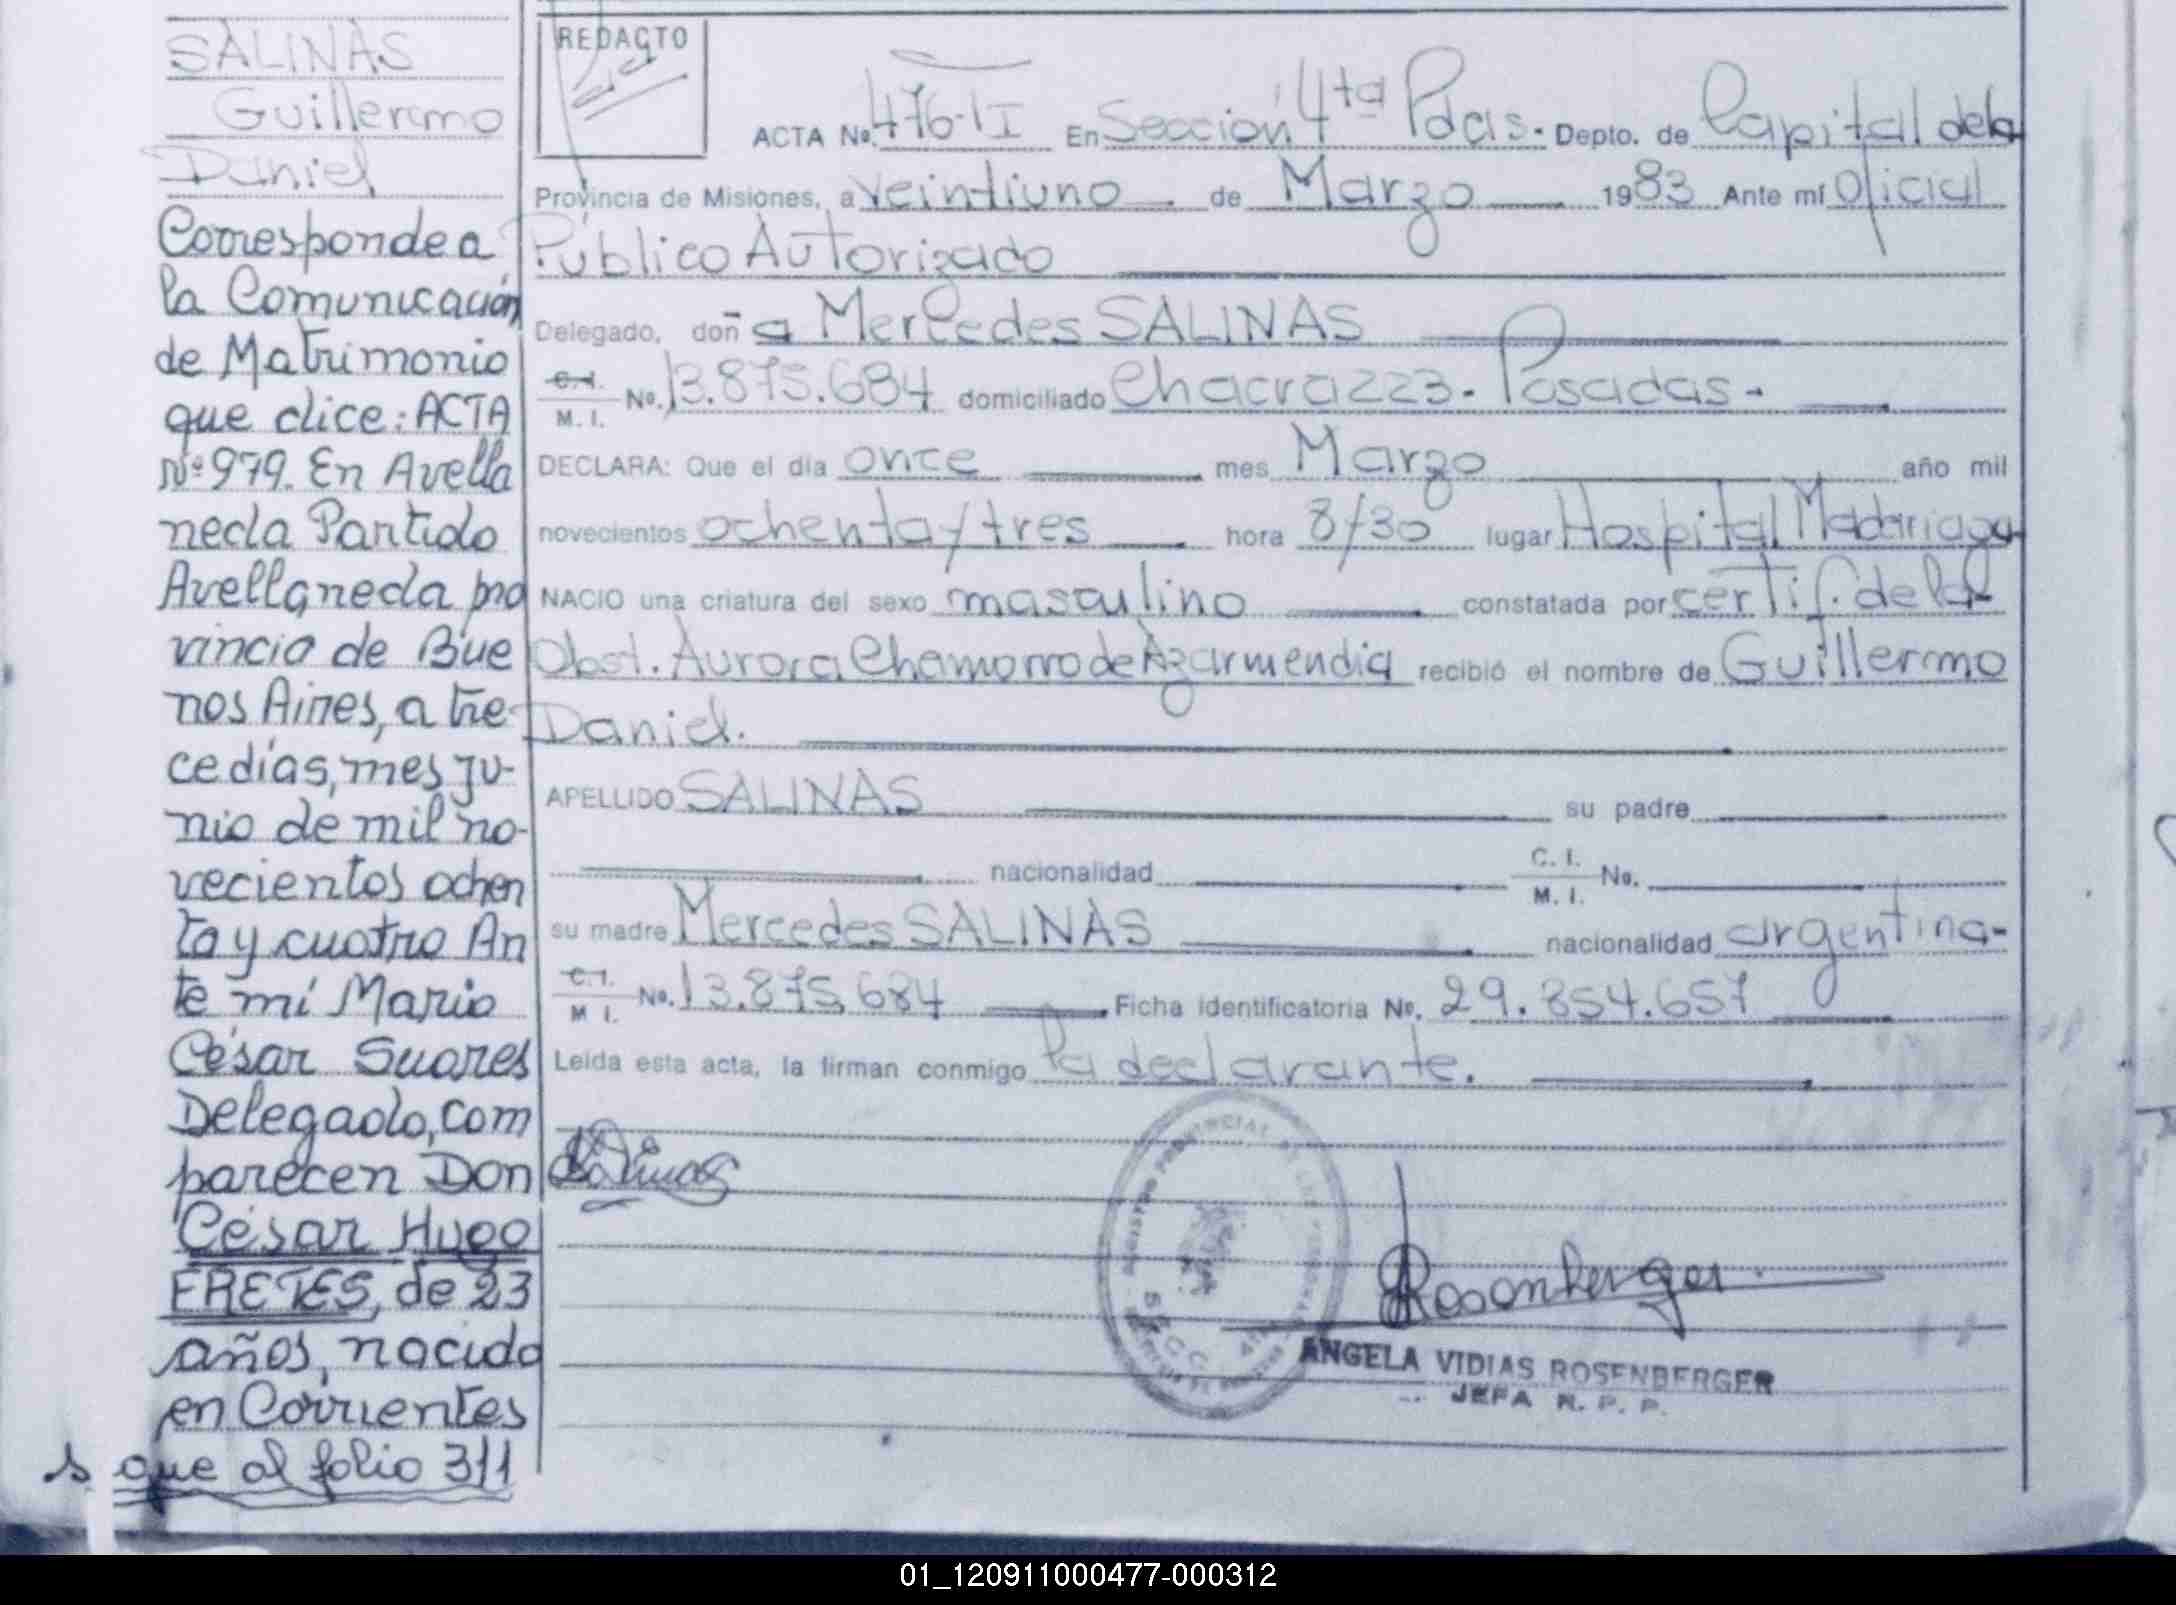 SALINAS
Guillermo
Daniel
Corresponde a
la Comunicación
de Matrimonio
que dice: ACTA
Nº 979. En Avella
neda Partido
Avellaneda pro
vincia de Bue
nos Aires, a tre-
ce días, mes ju-
nio de mil no-
vecientos ochen
ta y cuatro An
te mí Mario
César Suares
Delegado, com
parecen Don
César Hugo
FRETES, de 23
años, nacido
en Corrientes
que al folio 311
REDACTO
ACTA No. 476-II En Sección 4ta Pdas. Depto. de Capital de la
Provincia de Misiones, a veintiuno de Marzo 1983 Ante mí Oficial
Público Autorizado
Delegado, doña Mercedes SALINAS
C.I.
M. I. No. 13.875.684 domiciliado Chacra 223. Posadas.-
DECLARA: Que el día once mes Marzo año mil
novecientos ochenta y tres hora 8/30 lugar Hospital Madariaga
NACIO una criatura del sexo masculino constatada por certif. de la
Obst. Aurora Chamorro de Azarmendia recibió el nombre de Guillermo
Daniel.
APELLIDO SALINAS su padre
nacionalidad C. I.
M. I. No.
su madre Mercedes SALINAS nacionalidad argentina-
C.I.
M I. No. 13.875.684 Ficha identificatoria No. 29.854.657
Leída esta acta, la firman conmigo la declarante.
Salinas
Rosenberger
ANGELA VIDIAS ROSENBERGER
JEFA R. P. P.
01_120911000477-000312